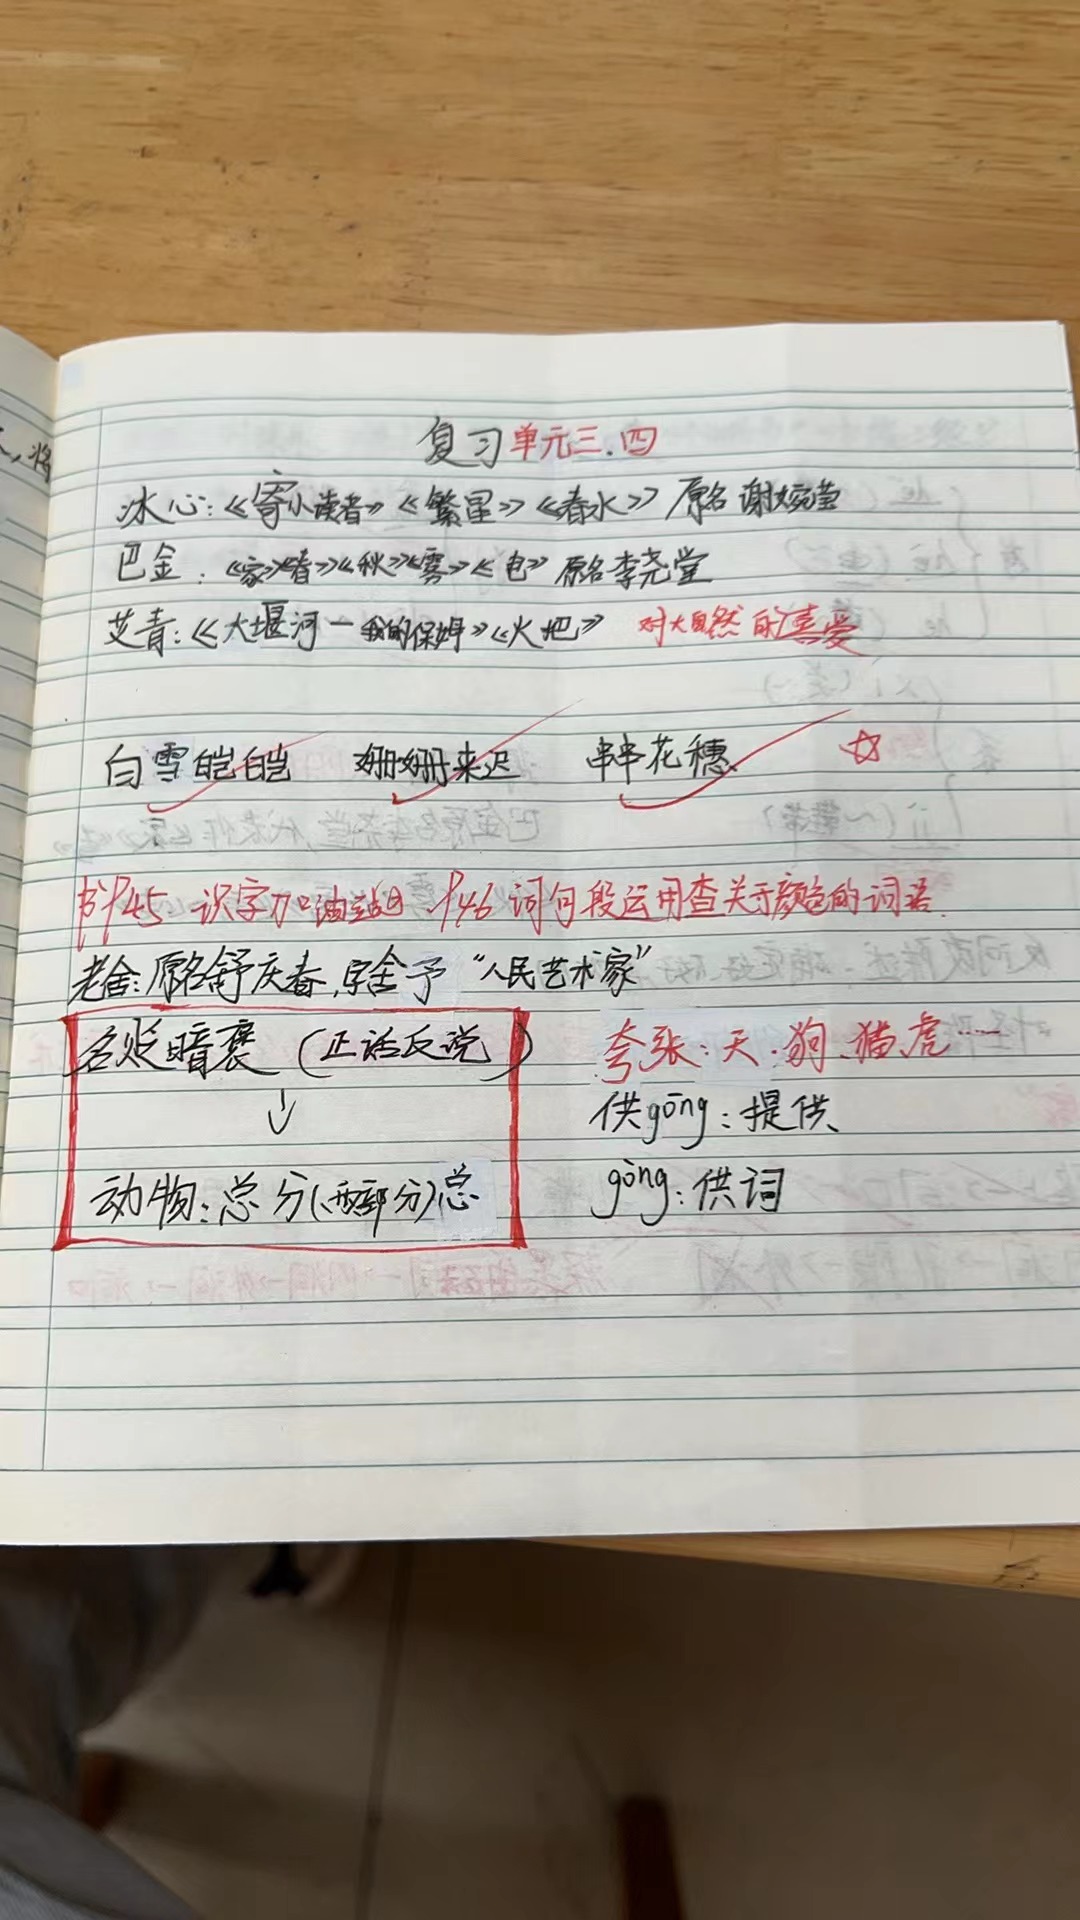 复习单元三.四
冰心:《寄小读者》《繁星》《春水》原名谢婉莹
巴金:《家》《春》《秋》《雾》《电》原名李尧堂
艾青:《大堰河一我的保姆》《火把》 对大自然的喜爱
白雪皑皑 姗姗来迟 串串花穗 ☆
书P45 识字加油站 P46 词句段运用查关于颜色的词语.
老舍:原名舒庆春,字舍予 "人民艺术家"
名贬暗褒 (正话反说) 夸张:天.狗.猫虎……
↓ 供gōng:提供
动物:总分(两部分)总 gòng:供词